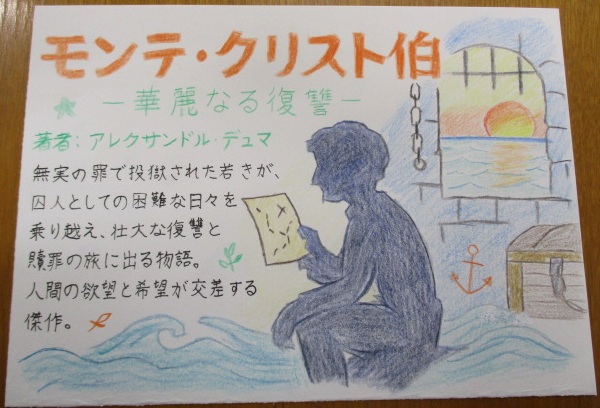 モンテ・クリスト伯
－華麗なる復讐－
著者：アレクサンドル・デュマ
無実の罪で投獄された若きが、
囚人としての困難な日々を
乗り越え、壮大な復讐と
贖罪の旅に出る物語。
人間の欲望と希望が交差する
傑作。